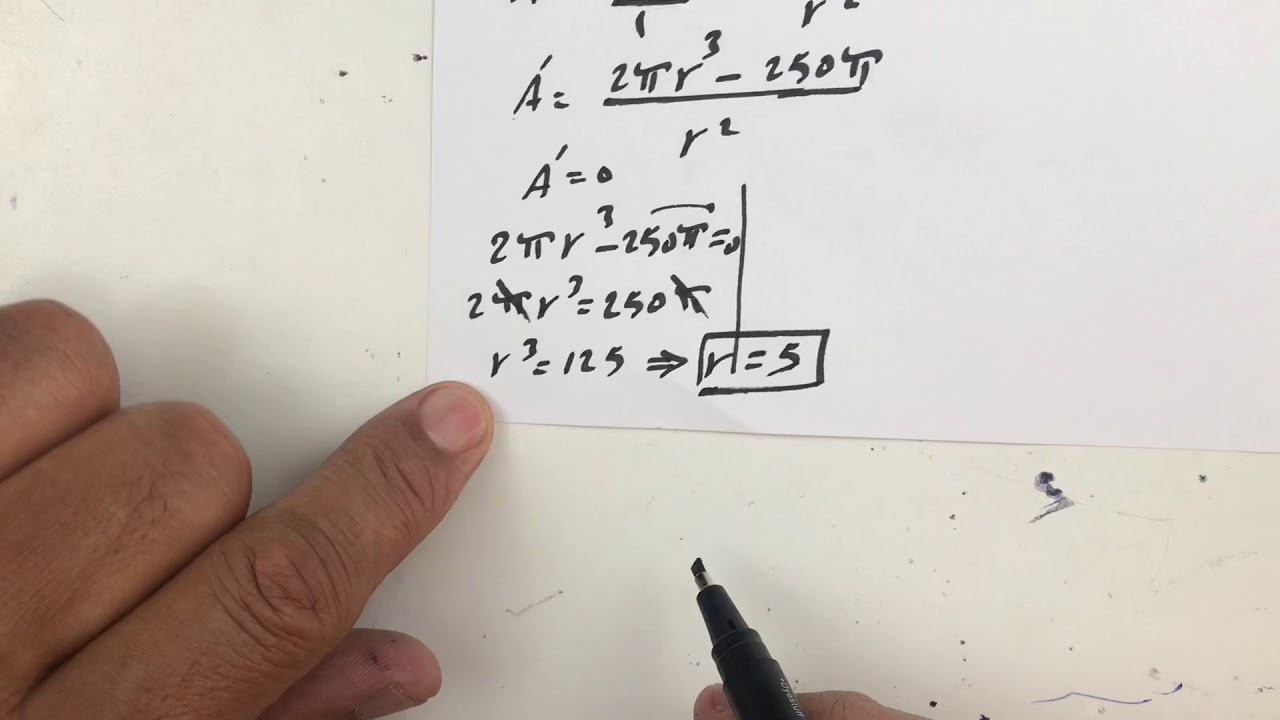 1 r²
A' = 2πr³ - 250π / r²
A' = 0
2πr³ - 250π = 0
2πr³ = 250π
r³ = 125 ⇒ r = 5